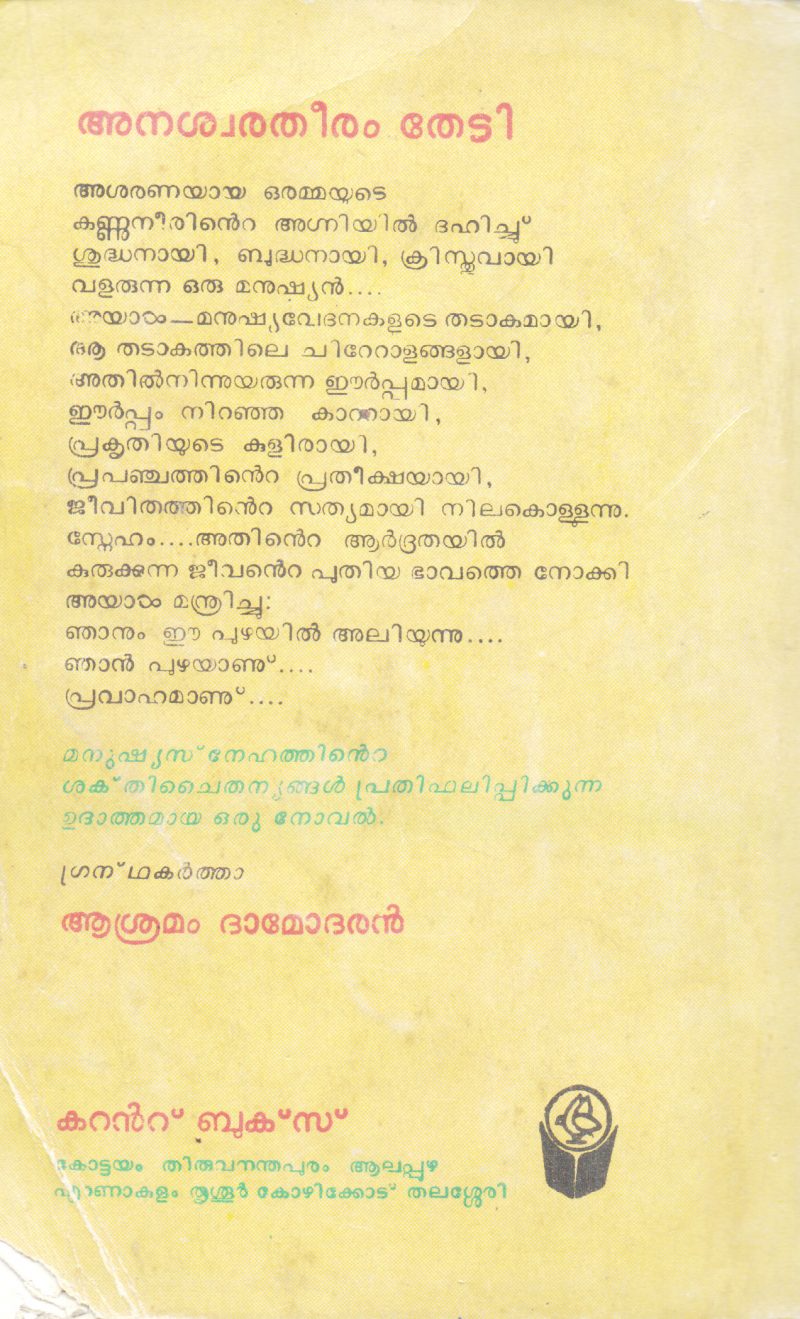 അനശ്വരതീരം തേടി
അശരണയായ ഒരമ്മയുടെ
കണ്ണുനീരിൻെറ അഗ്നിയിൽ ദഹിച്ചു്
ശുദ്ധനായി, ബുദ്ധനായി, ക്രിസ്തുവായി
വളരുന്ന ഒരു മനുഷ്യൻ....
അയാൾ—മനുഷ്യവേദനകളുടെ തടാകമായി,
ആ തടാകത്തിലെ ചിറേറാളങ്ങളായി,
അതിൽനിന്നുയരുന്ന ഈർപ്പമായി,
ഈർപ്പം നിറഞ്ഞ കാററായി,
പ്രകൃതിയുടെ കുളിരായി,
പ്രപഞ്ചത്തിൻെറ പ്രതീക്ഷയായി,
ജീവിതത്തിൻെറ സത്യമായി നിലകൊള്ളുന്നു.
സ്നേഹം....അതിൻെറ ആർദ്രതയിൽ
കുരുക്കുന്ന ജീവൻെറ പുതിയ ഭാവത്തെ നോക്കി
അയാൾ മന്ത്രിച്ചു:
ഞാനും ഈ പുഴയിൽ അലിയുന്നു....
ഞാൻ പുഴയാണു്....
പ്രവാഹമാണു്....
മനുഷ്യസ്നേഹത്തിൻെറ
ശക്തിചൈതന്യങ്ങൾ പ്രതിഫലിപ്പിക്കുന്ന
ഉദാത്തമായ ഒരു നോവൽ.
ഗ്രന്ഥകർത്താ
ആശ്രമം ദാമോദരൻ
കറൻറ് ബുക്സ്
കോട്ടയം തിരുവനന്തപുരം ആലപ്പുഴ
എറണാകുളം തൃശൂർ കോഴിക്കോട് തലശ്ശേരി